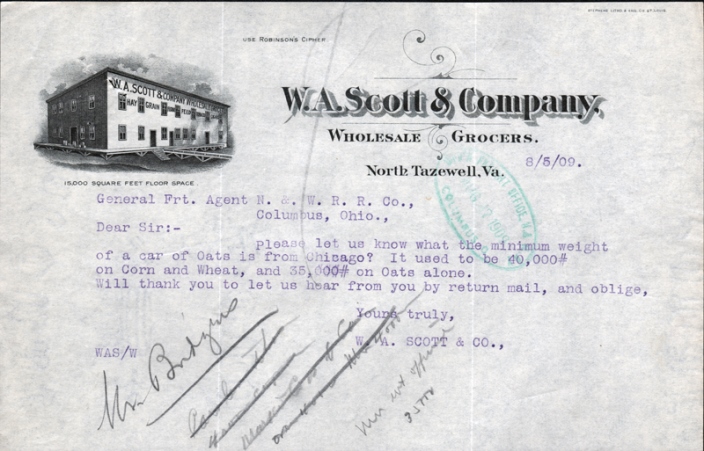 USE ROBINSON'S CIPHER.
W.A. SCOTT & COMPANY WHOLESALE
HAY GRAIN FEED
15,000 SQUARE FEET FLOOR SPACE.
W.A. Scott & Company.
WHOLESALE GROCERS.
North Tazewell, Va.
8/5/09.
General Frt. Agent N. & W. R. R. Co.,
Columbus, Ohio.,
Dear Sir:-
Please let us know what the minimum weight
of a car of Oats is from Chicago? It used to be 40,000#
on Corn and Wheat, and 35,000# on Oats alone.
Will thank you to let us hear from you by return mail, and oblige,
Yours truly,
W. A. SCOTT & CO.,
WAS/W
Mr Bridges